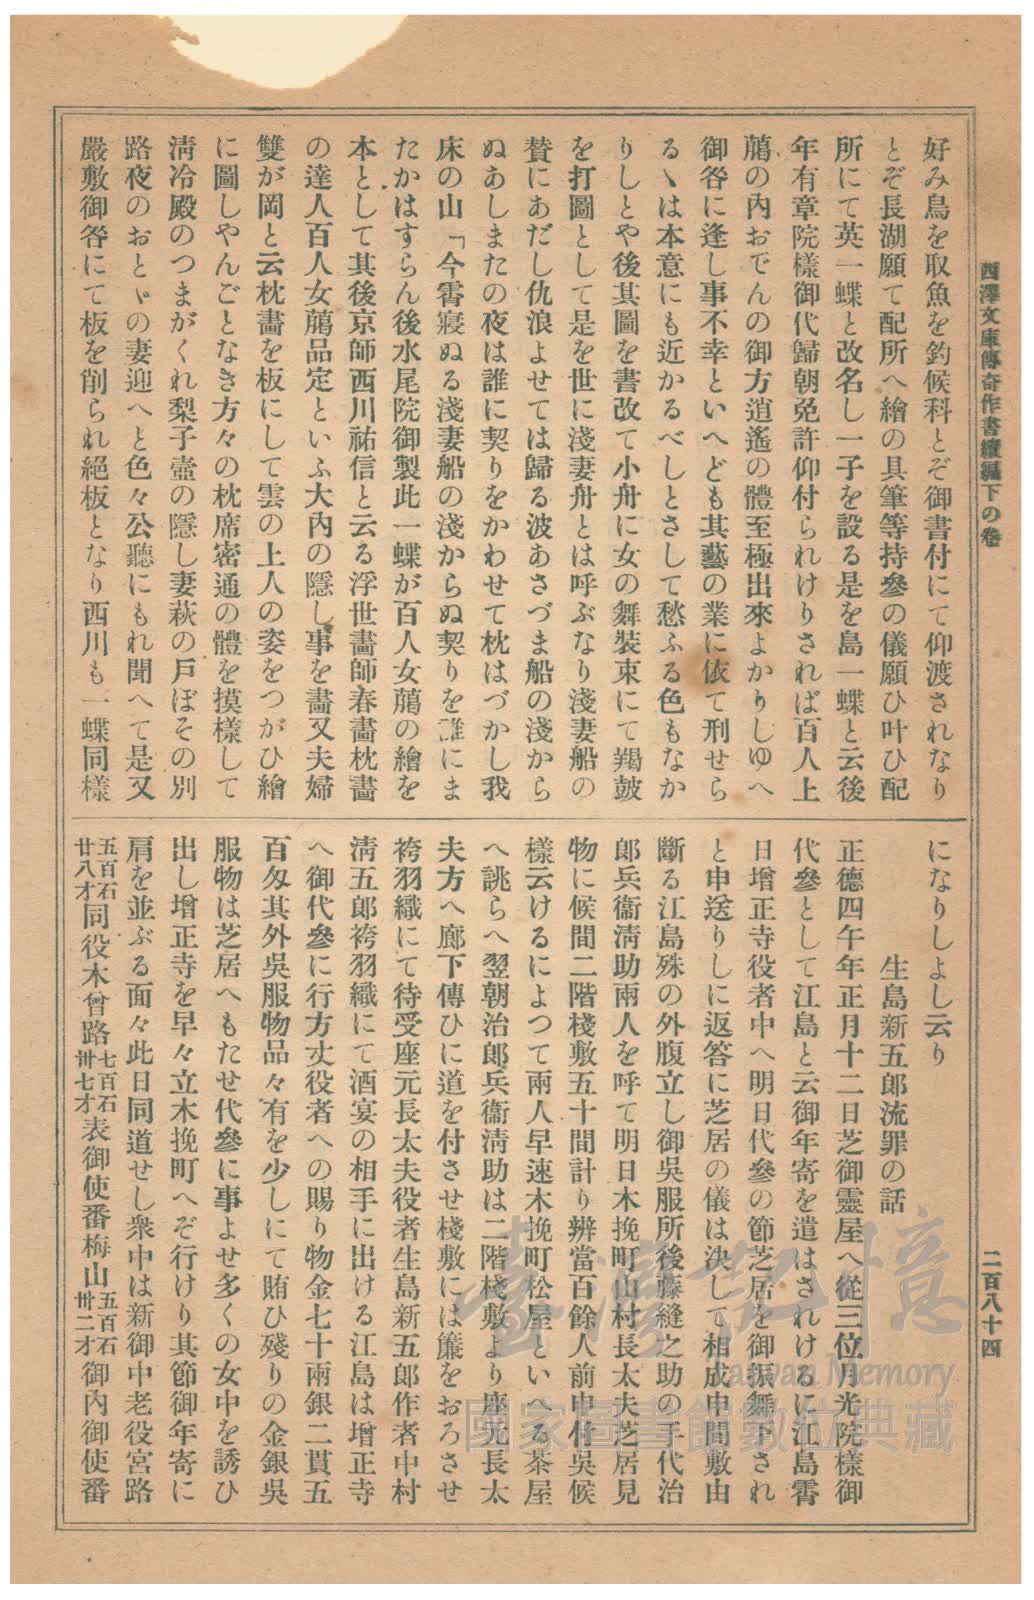 西澤文庫傳奇作書續編下の卷
二百八十四
好み鳥を取魚を釣候科とぞ御書付にて仰渡されなり
とぞ長湖願て配所へ繪の具筆等持參の儀願ひ叶ひ配
所にて英一蝶と改名し一子を設る是を島一蝶と云後
年有章院樣御代歸朝免許仰付られけりされば百人上
﨟の內おでんの御方逍遙の體至極出來よかりしゆへ
御咎に逢し事不幸といへども其藝の業に依て刑せら
るゝは本意にも近かるべしとさして愁ふる色もなか
りしとや後其圖を書改て小舟に女の舞裝束にて羯鼓
を打圖として是を世に淺妻舟とは呼ぶなり淺妻船の
賛にあだし仇浪よせては歸る波あさづま船の淺から
ぬあしまたの夜は誰に契りをかわせて枕はづかし我
床の山「今霄寢ぬる淺妻船の淺からぬ契りを誰にま
たかはすらん後水尾院御製此一蝶が百人女﨟の繪を
本として其後京師西川祐信と云る浮世畵師春畵枕畵
の達人百人女﨟品定といふ大內の隱し事を畵又夫婦
雙が岡と云枕畵を板にして雲の上人の姿をつがひ繪
に圖しやんごとなき方々の枕席密通の體を摸樣して
淸冷殿のつまがくれ梨子壺の隱し妻萩の戶ぼその別
路夜のおとゞの妻迎へと色々公聽にもれ聞へて是又
嚴敷御咎にて板を削られ絕板となり西川も一蝶同樣
になりしよし云り
生島新五郎流罪の話
正德四午年正月十二日芝御靈屋へ從三位月光院樣御
代參として江島と云御年寄を遣はされけるに江島霄
日增正寺役者中へ明日代參の節芝居を御振舞下され
と申送りしに返答に芝居の儀は決して相成申間敷由
斷る江島殊の外腹立し御吳服所後藤縫之助の手代治
郎兵衞淸助兩人を呼て明日木挽町山村長太夫芝居見
物に候間二階棧敷五十間計り辨當百餘人前申付吳候
樣云けるによつて兩人早速木挽町松屋といへる茶屋
へ誂らへ翌朝治郎兵衞淸助は二階棧敷より座元長太
夫方へ廊下傳ひに道を付させ棧敷には簾をおろさせ
袴羽織にて待受座元長太夫役者生島新五郎作者中村
淸五郎袴羽織にて酒宴の相手に出ける江島は增正寺
へ御代參に行方丈役者への賜り物金七十兩銀二貫五
百匁其外吳服物品々有を少しにて賄ひ殘りの金銀吳
服物は芝居へもたせ代參に事よせ多くの女中を誘ひ
出し增正寺を早々立木挽町へぞ行けり其節御年寄に
肩を並ぶる面々此日同道せし衆中は新御中老役宮路
五百石廿八才同役木曾路七百石卅七才表御使番梅山五百石卅二才御內御使番
臺灣記憶
Taiwan Memory
國家圖書館數位典藏